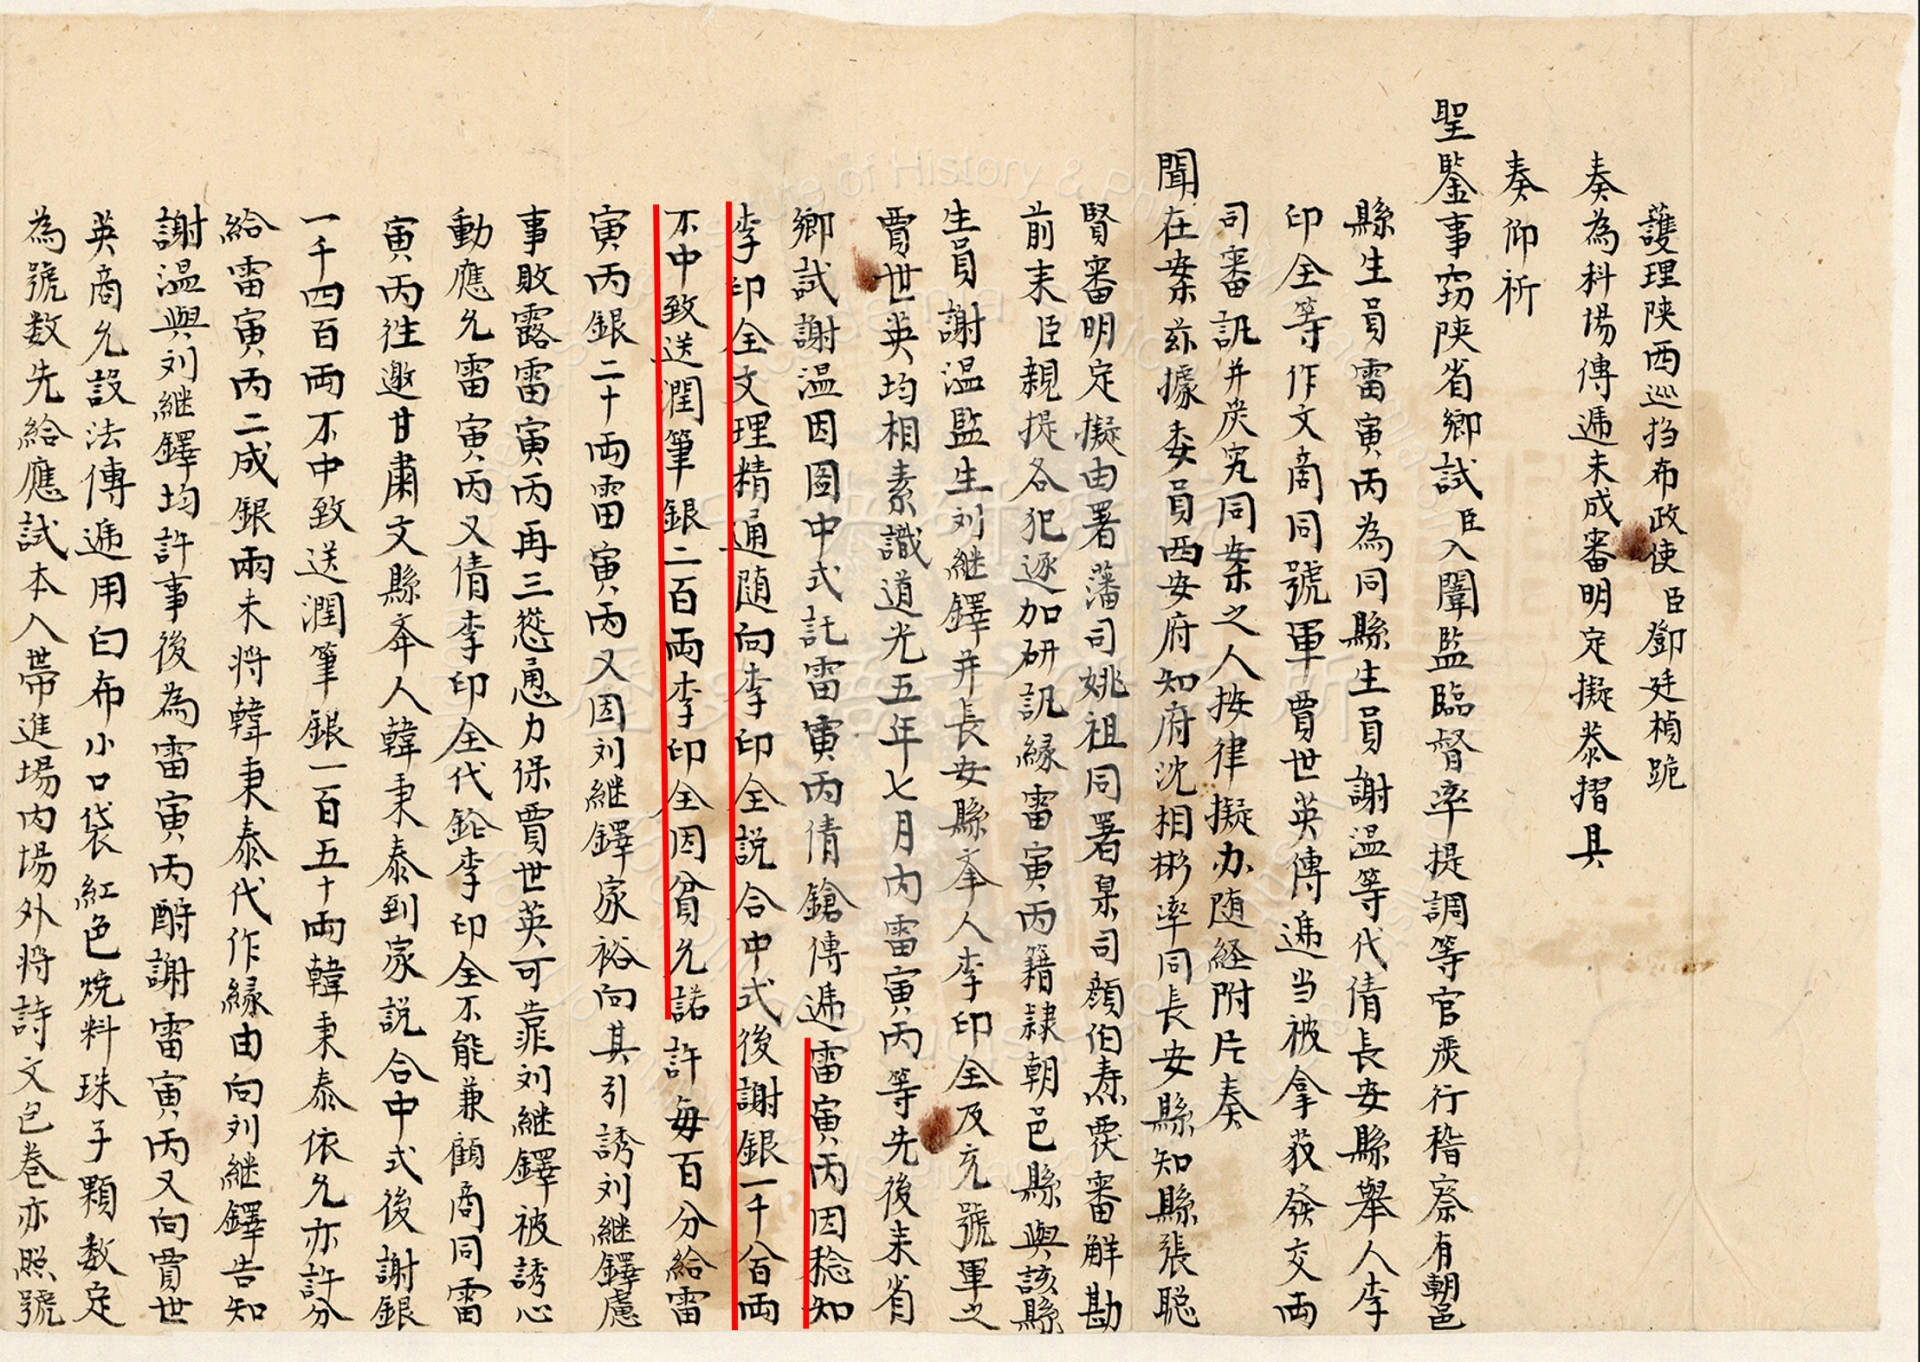 護理陝西巡撫布政使臣鄧廷楨跪
奏為科場傳遞未成審明定擬恭摺具
奏仰祈
聖鑒事竊陝省鄉試臣入闈監臨督率提調等官嚴行稽察有朝邑
縣生員雷寅丙為同縣生員謝溫等代倩長安縣舉人李
印全等作文商同號軍賈世英傳遞当被拿获發交両
司審訊并嚴究同案之人按律擬办随経附片奏
聞在案茲據委員西安府知府沈相彬率同長安縣知縣張聡
賢審明定擬由署藩司姚祖同署臬司顔伯燾覆審觧勘
前来臣親提各犯逐加研訊縁雷寅丙籍隷朝邑縣與該縣
生員謝溫監生刘継鐸并長安縣夆人李印全及充號軍之
賈世英均相素識道光五年七月内雷寅丙等先後来省
鄉試謝溫因圖中式託雷寅丙倩鎗傳遞雷寅丙因稔知
李印全文理精通随向李印全説合中式後謝銀一千八百両
不中致送潤筆銀二百両李印全因貧允諾許每百分給雷
寅丙銀二十両雷寅丙又因刘継鐸家裕向其引誘刘継鐸慮
事敗露雷寅丙再三慫恿力保賈世英可靠刘継鐸被誘心
動應允雷寅丙又倩李印全代鎗李印全不能兼顧商同雷
寅丙往邀甘肅文縣夆人韓秉泰到家説合中式後謝銀
一千四百両不中致送潤筆銀一百五十両韓秉泰依允亦許分
給雷寅丙二成銀兩未将韓秉泰代作縁由向刘継鐸告知
謝溫與刘継鐸均許事後為雷寅丙酧謝雷寅丙又向賈世
英商允設法傳遞用白布小口袋紅色焼料珠子顆数定
為號数先給應試本人帶進場内場外将詩文包卷亦照號